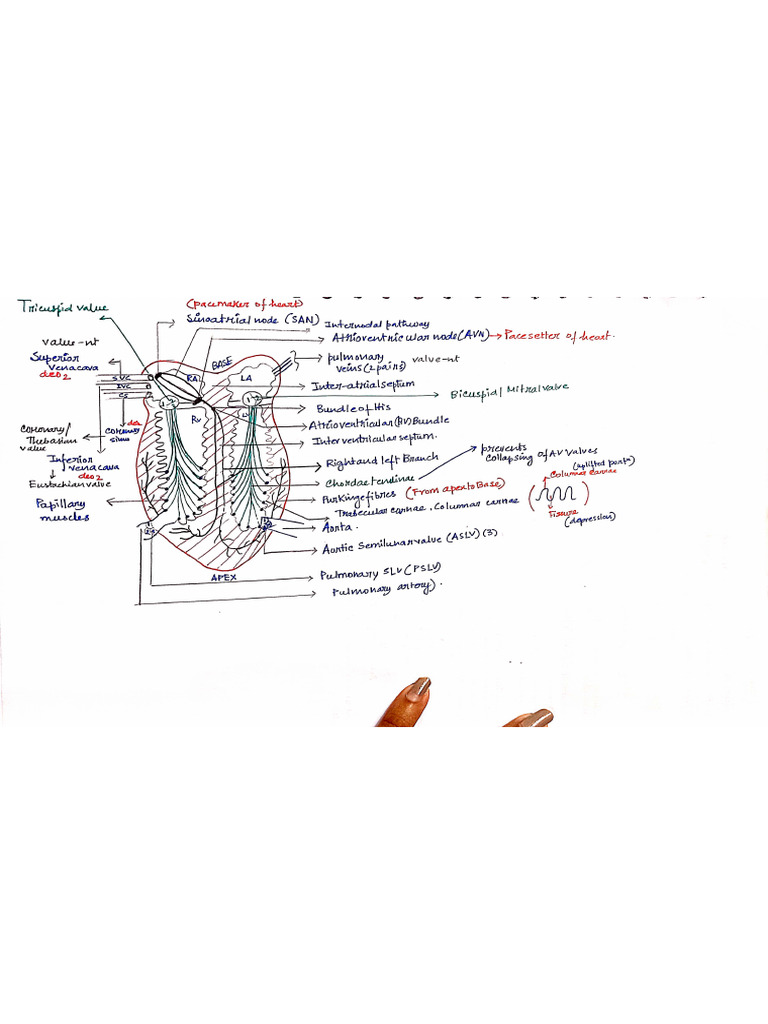 Tricuspid value
(pacemaker of heart)
Sinoatrial node (SAN)
Internodal pathway
Atrioventricular node (AVN) → Pacesetter of heart.
value-nt
Superior
venacava
deo2
BASE
pulmonary
veins (2 pairs)
value-nt
SVC
IVC
CS
RA
LA
Inter-atrial septum
Bicuspid / Mitral valve
RV
LV
Bundle of His
Atrioventricular (AV) Bundle
Interventricular septum.
Coronary/
Thebasian
value
deo
Coronary
sinus
Inferior
venacava
deo2
Eustachian valve
Right and left Branch
Chordae tendinae
prevents
collapsing of AV valves
Purkinge fibres (From apex to Base)
Trabecular carnae, Columnar carnae
(uplifted parts)
Columnae carnae
Fissure
(depression)
Papillary
muscles
Aorta.
Aortic Semilunar valve (ASLV) (3)
APEX
Pulmonary SLV (PSLV)
Pulmonary artery).